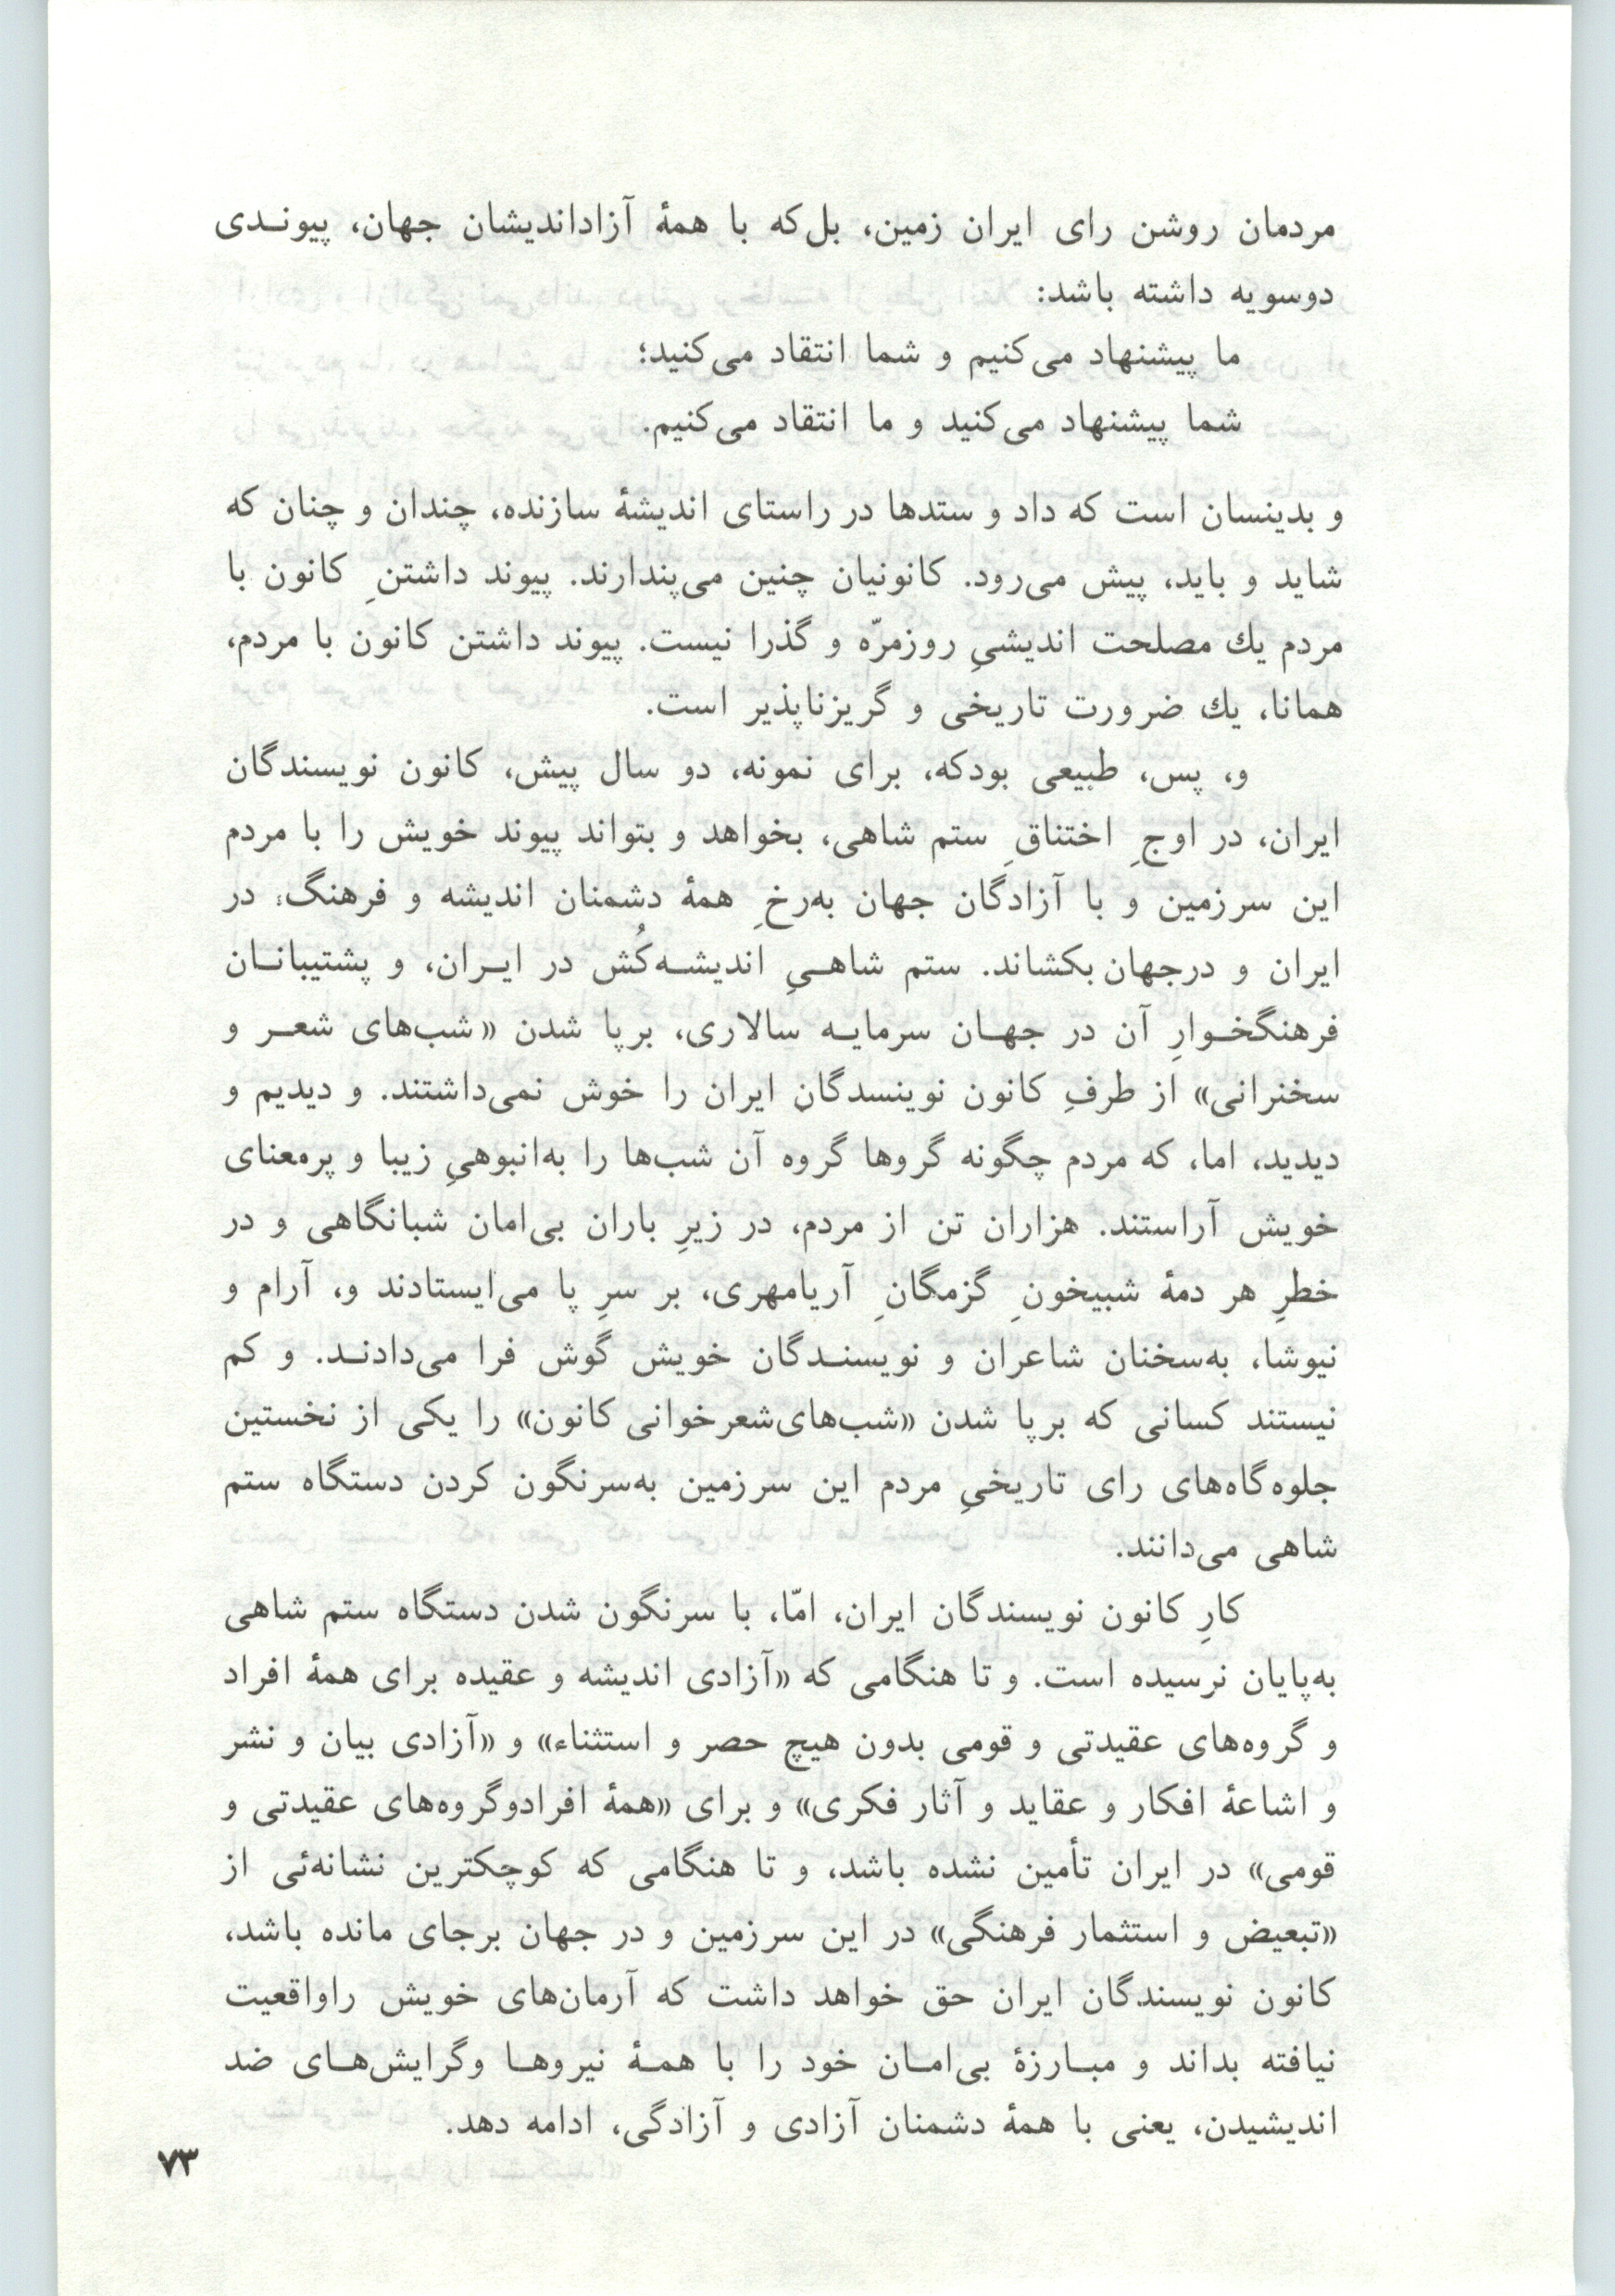 مردمان روشن رای ایران زمین، بل‌که با همهٔ آزاداندیشان جهان، پیونـدی
دوسویه داشته باشد:
ما پیشنهاد می‌کنیم و شما انتقاد می‌کنید؛
شما پیشنهاد می‌کنید و ما انتقاد می‌کنیم.
و بدینسان است که داد و ستدها در راستای اندیشهٔ سازنده، چندان و چنان که
شاید و باید، پیش می‌رود. کانونیان چنین می‌پندارند. پیوند داشتنِ کانون با
مردم یك مصلحت اندیشیِ روزمرّه و گذرا نیست. پیوند داشتن کانون با مردم،
همانا، یك ضرورت تاریخی و گریزناپذیر است.
و، پس، طبیعی بودکه، برای نمونه، دو سال پیش، کانون نویسندگان
ایران، در اوجِ اختناقِ ستم شاهی، بخواهد و بتواند پیوند خویش را با مردم
این سرزمین و با آزادگان جهان به‌رخِ همهٔ دشمنان اندیشه و فرهنگ، در
ایران و درجهان بکشاند. ستم شاهـیِ اندیشـه‌کُش در ایـران، و پشتیبانـان
فرهنگخـوارِ آن در جهـان سرمایـه سالاری، برپا شدن «شب‌های شعـر و
سخنرانی» از طرفِ کانون نوینسدگانِ ایران را خوش نمی‌داشتند. و دیدیم و
دیدید، اما، که مردم چگونه گروها گروه آن شب‌ها را به‌انبوهیِ زیبا و پرمعنای
خویش آراستند. هزاران تن از مردم، در زیرِ باران بی‌امان شبانگاهی و در
خطرِ هر دمهٔ شبیخونِ گزمگانِ آریامهری، بر سرِ پا می‌ایستادند و، آرام و
نیوشا، به‌سخنان شاعران و نویسنـدگان خویش گوش فرا می‌دادنـد. و کم
نیستند کسانی که برپا شدن «شب‌های‌شعرخوانی کانون» را یکی از نخستین
جلوه‌گاه‌های رای تاریخیِ مردم این سرزمین به‌سرنگون کردن دستگاه ستم
شاهی می‌دانند.
کارِ کانون نویسندگان ایران، امّا، با سرنگون شدن دستگاه ستم شاهی
به‌پایان نرسیده است. و تا هنگامی که «آزادی اندیشه و عقیده برای همهٔ افراد
و گروه‌های عقیدتی و قومی بدون هیچ حصر و استثناء» و «آزادی بیان و نشر
و اشاعهٔ افکار و عقاید و آثار فکری» و برای «همهٔ افرادوگروه‌های عقیدتی و
قومی» در ایران تأمین نشده باشد، و تا هنگامی که کوچکترین نشانه‌ئی از
«تبعیض و استثمار فرهنگی» در این سرزمین و در جهان برجای مانده باشد،
کانون نویسندگان ایران حق خواهد داشت که آرمان‌های خویش راواقعیت
نیافته بداند و مبـارزهٔ بی‌امـان خود را با همـهٔ نیروهـا وگرایش‌هـای ضد
اندیشیدن، یعنی با همهٔ دشمنان آزادی و آزادگی، ادامه دهد.
۷۳